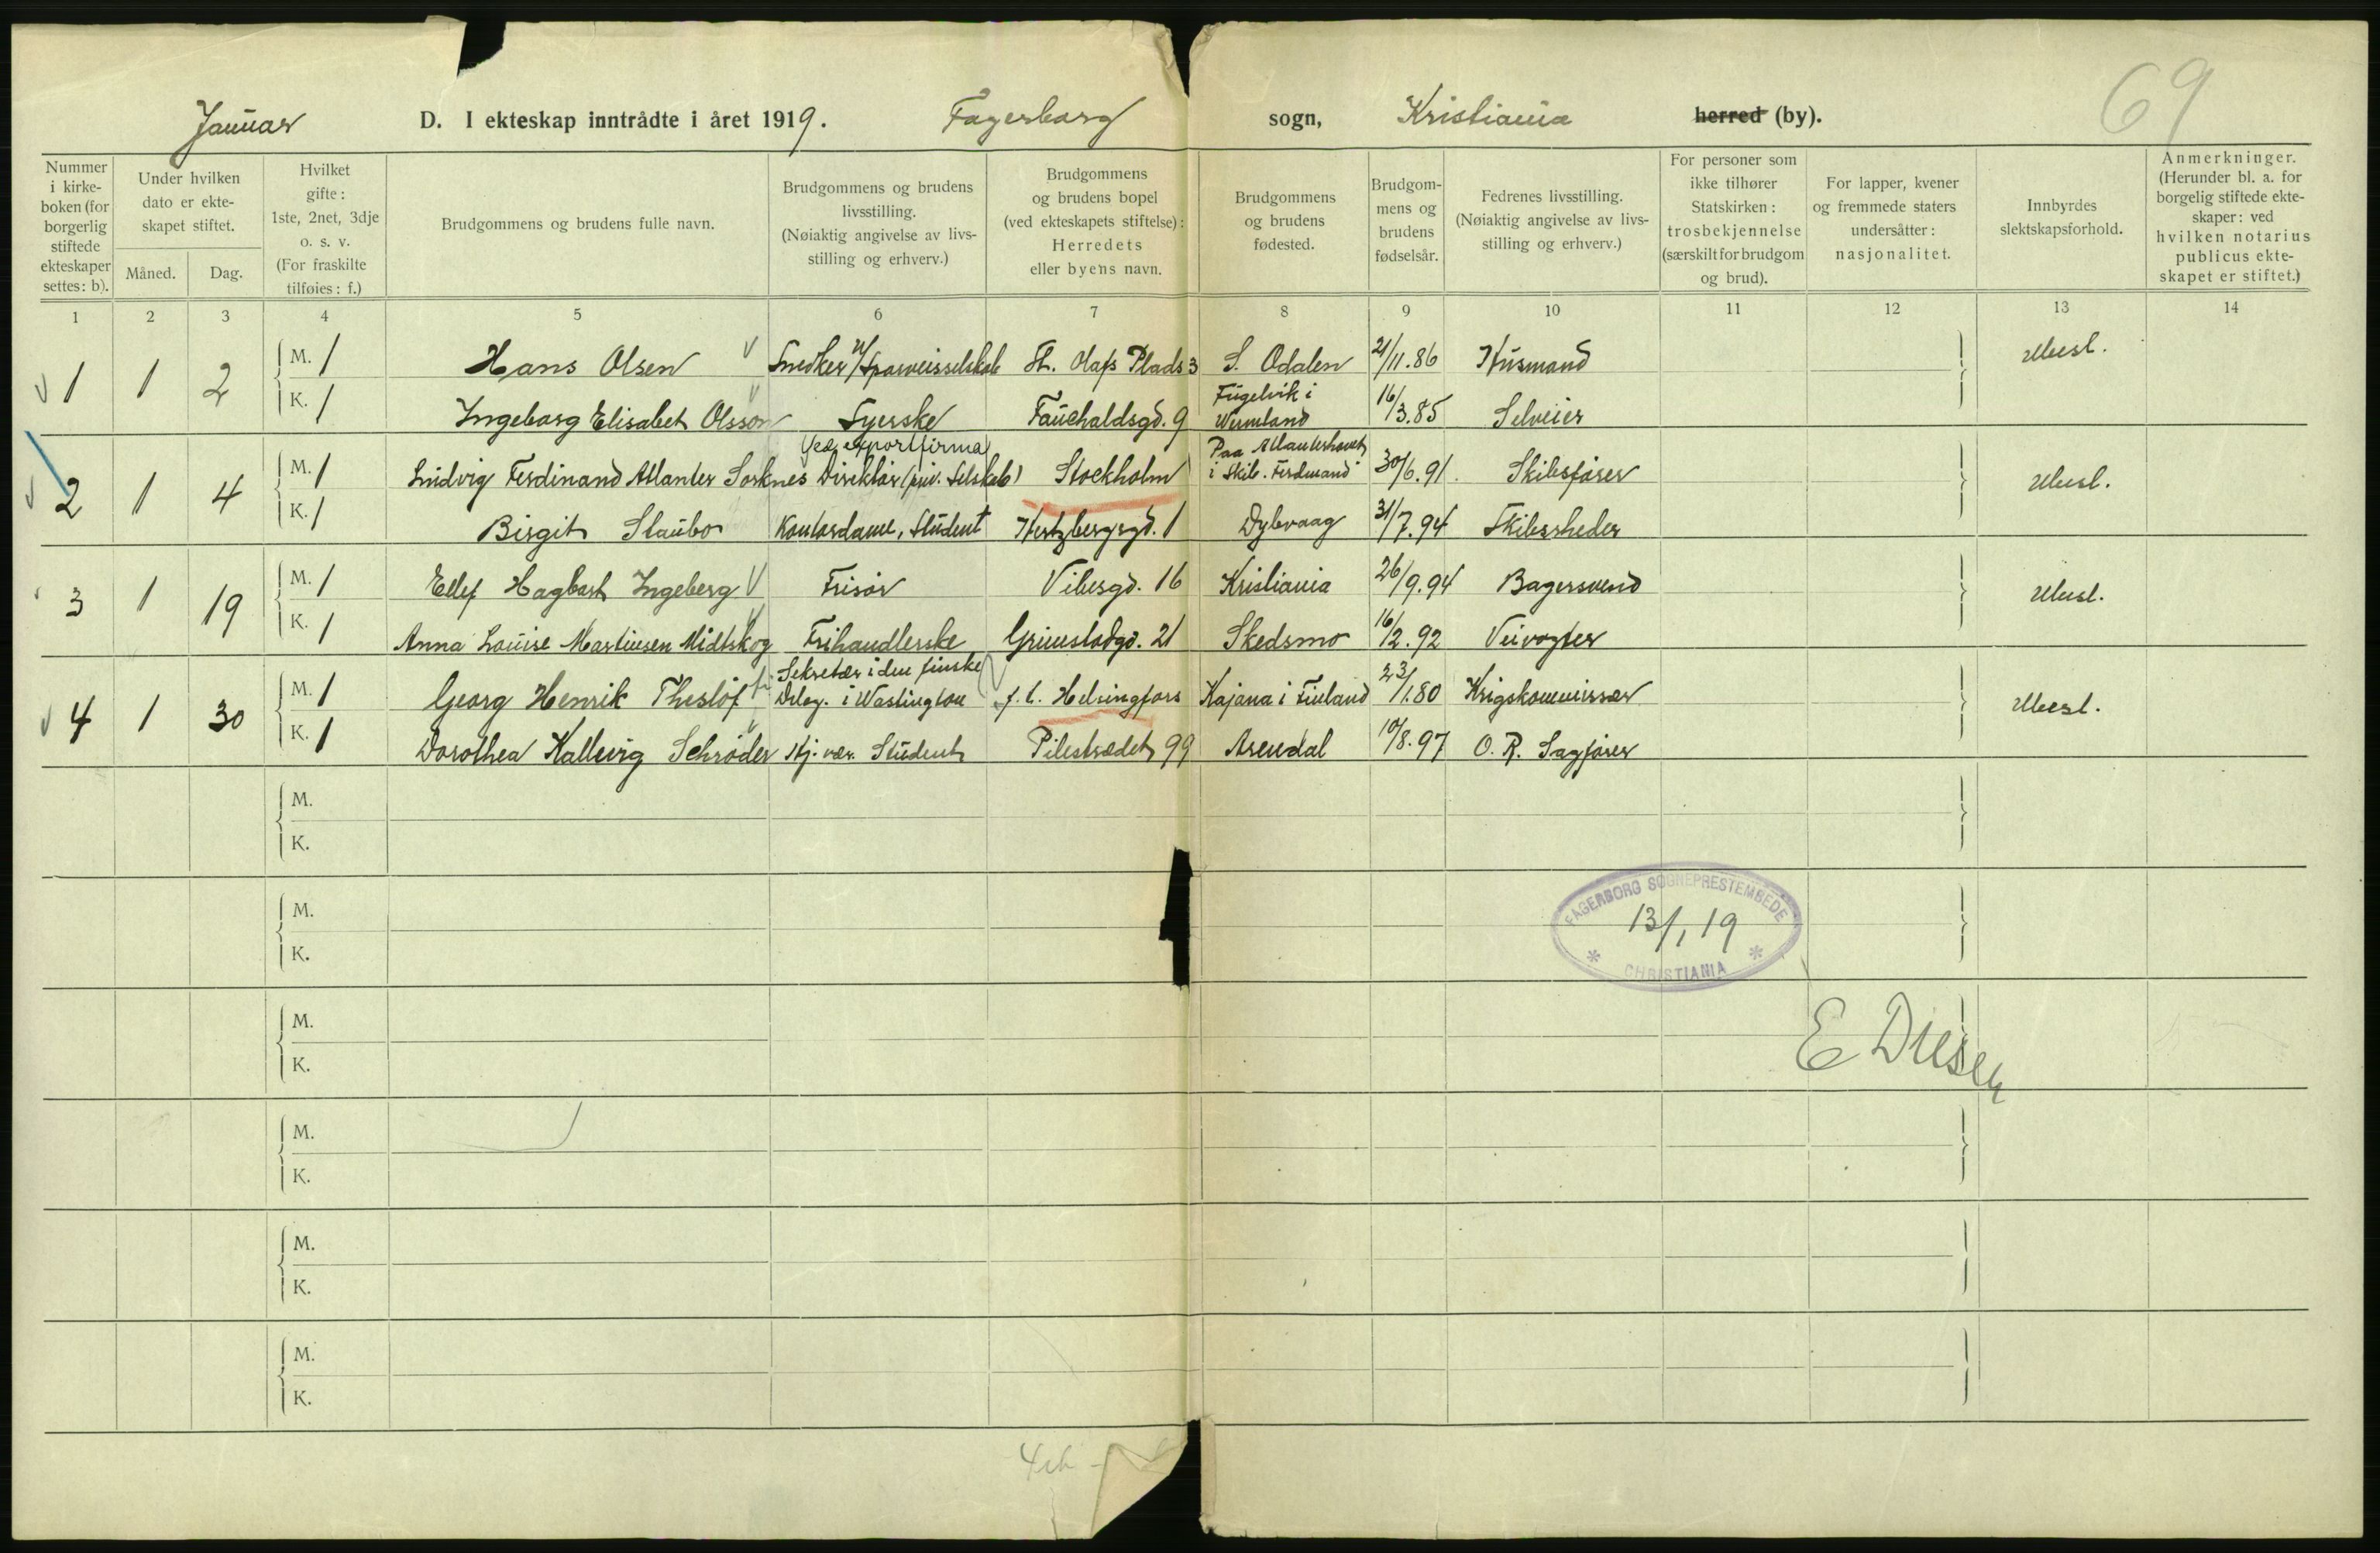 Januar D. I ekteskap inntrådte i året 1919. Fagerborg sogn, Kristiania herred (by). 69
Nummer i kirke- boken (for borgerlig stiftede ekteskaper settes: b).
Under hvilken dato er ekte- skapet stiftet.
Måned. Dag.
Hvilket gifte: 1ste, 2net, 3dje o. s. v. (For fraskilte tilføies: f.)
Brudgommens og brudens fulle navn.
Brudgommens og brudens livsstilling. (Nøiaktig angivelse av livs- stilling og erhverv.)
Brudgommens og brudens bopel (ved ekteskapets stiftelse): Herredets eller byens navn.
Brudgommens og brudens fødested.
Brudgom- mens og brudens fødselsår.
Fedrenes livsstilling. (Nøiaktig angivelse av livs- stilling og erhverv.)
For personer som ikke tilhører Statskirken: trosbekjennelse (særskilt for brudgom og brud).
For lapper, kvener og fremmede staters undersåtter: nasjonalitet.
Innbyrdes slektskapsforhold.
Anmerkninger. (Herunder bl. a. for borgelig stiftede ekte- skaper: ved hvilken notarius publicus ekte- skapet er stiftet.)
1 2 3 4 5 6 7 8 9 10 11 12 13 14
1 1 2 M. 1 Hans Olsen Snedker v/ Sporveisselskab St. Olafs Plads 3 S. Odalen 21/11.86 Husmand Ubesl.
K. 1 Ingeborg Elisabet Olsson Syerske Fauchaldsgd. 9 Fugelvik i Wermland 16/3.85 Selveier
2 1 4 M. 1 Ludvig Ferdinand Atlanter Sorknes Ved exportfirma Direktør (priv. Selskab) Stockholm Paa Atlanterhavet i Skib. Ferdinand 30/6.91. Skibsfører Ubesl.
K. 1 Birgit Staubo Kontordame, Student Hertzbergsgd. 1 Dybvaag 31/7.94 Skibsreder
3 1 19 M. 1 Ellef Hagbart Ingeberg Frisør Vibesgd. 16 Kristiania 26/9.94 Bagersvend Ubesl.
K. 1 Anna Louise Martinsen Midtskog Frihandlerske Grimstadgd. 21 Skedsmo 16/2.92 Veivogter
4 1 30 M. 1 Georg Henrik Theslöf Sekretær i den finske Deleg. i Washington f. t. Helsingfors Kajana i Finland 23/1.80 Krigskommissær Ubesl.
K. 1 Dorothea Kallevig Schrøder Hj. vær. Student Pilestrædet 99 Arendal 10/8.97 O. R. Sagfører
M.
K.
M.
K.
FAGERBORG SOGNEPRESTEMBEDE
13/1 19
CHRISTIANIA
M.
K.
E Diesen
M.
K.
M.
K.
M.
K.